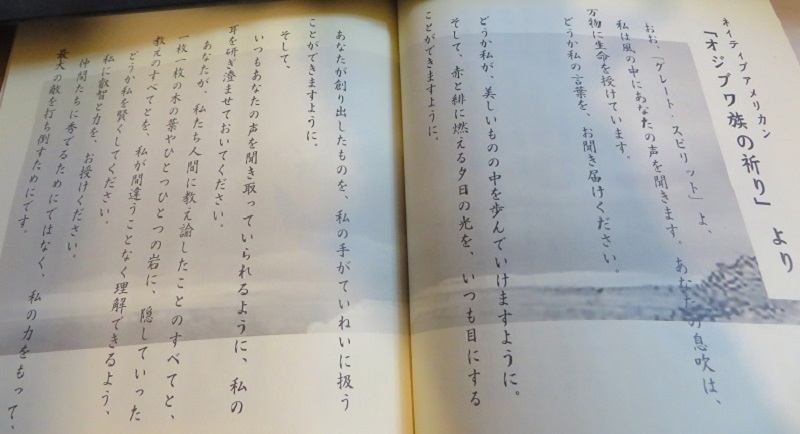 ネイティブアメリカン
「オジブワ族の祈り」 より
おお、「グレート・スピリット」よ、
私は風の中にあなたの声を聞きます。あなたの息吹は、
万物に生命を授けています。
どうか私の言葉を、お聞き届けください。
どうか私が、美しいものの中を歩んでいけますように。
そして、赤と緋に燃える夕日の光を、いつも目にする
ことができますように。
あなたが創り出したものを、私の手がていねいに扱う
ことができますように。
そして、
いつもあなたの声を聞き取っていられるように、私の
耳を研ぎ澄ませておいてください。
あなたが、私たち人間に教え諭したことのすべてと、
一枚一枚の木の葉やひとつひとつの岩に、隠していった
教えのすべてとを、私が間違うことなく理解できるよう、
どうか私を賢くしてください。
私に叡智と力を、お授けください。
仲間たちに秀でるためにではなく、私の力をもって、
最大の敵を打ち倒すためにです。